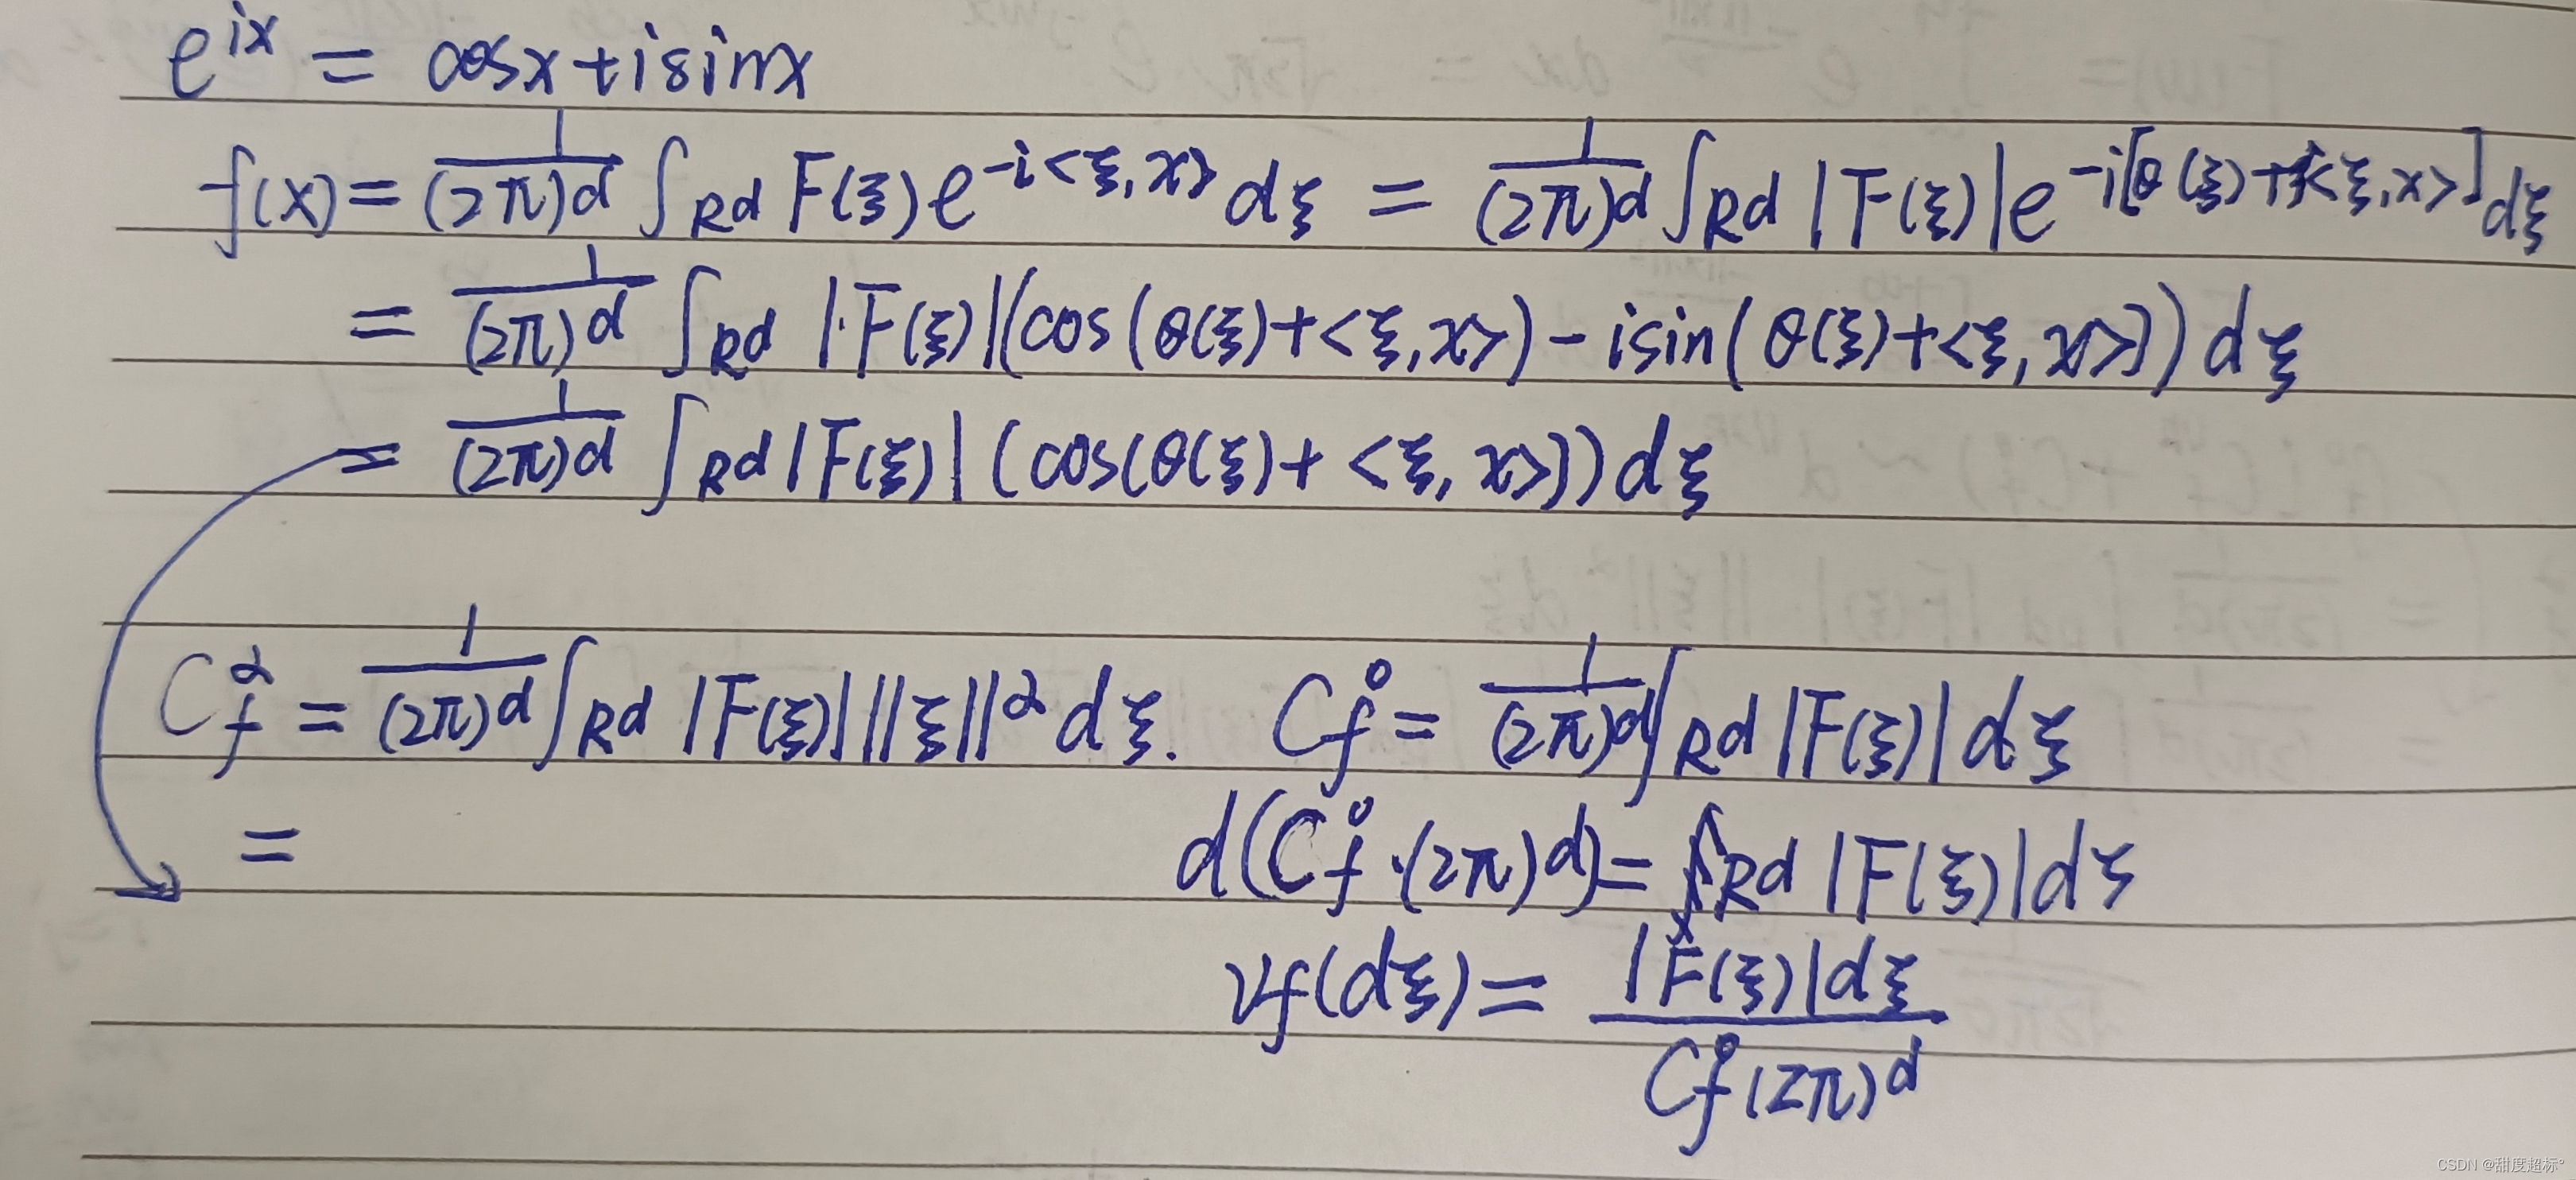 e^{ix} = cosx+isinx
f(x) = \frac{1}{(2π)^d} ∫_{R^d} F(ξ)e^{-i<ξ,x>}dξ = \frac{1}{(2π)^d} ∫_{R^d} |F(ξ)|e^{-i[θ(ξ)+<ξ,x>]}dξ
= \frac{1}{(2π)^d} ∫_{R^d} |F(ξ)|(cos(θ(ξ)+<ξ,x>)-isin(θ(ξ)+<ξ,x>))dξ
= \frac{1}{(2π)^d} ∫_{R^d} |F(ξ)| (cos(θ(ξ)+<ξ,x>))dξ
C_f^α = \frac{1}{(2π)^d} ∫_{R^d} |F(ξ)| ||ξ||^α dξ. C_f^0 = \frac{1}{(2π)^d} ∫_{R^d} |F(ξ)|dξ
= d(C_f^0·(2π)^d) = R^d |F(ξ)|dξ
ν_f(dξ) = \frac{|F(ξ)|dξ}{C_f^0(2π)^d}
CSDN @甜度超标°